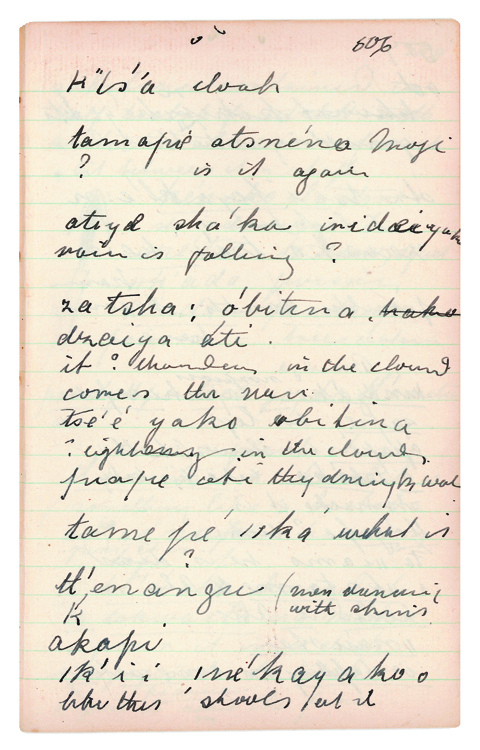 606
K"ts'a cloak
tamapé atsnéna Mogi
? is it again
atiyd sha'ka
rain is falling ?
za tsha: óbitina, hako
dzaiya áti.
it ? thunders in the cloud
comes the rain
tsé'é yako obitina
? lightning in the clouds
ati
tame pé' iska' what is
?
tl'enangu (men dancing
K with skins
akapi
ik'ii iné'kayakoo
like this shoots at it